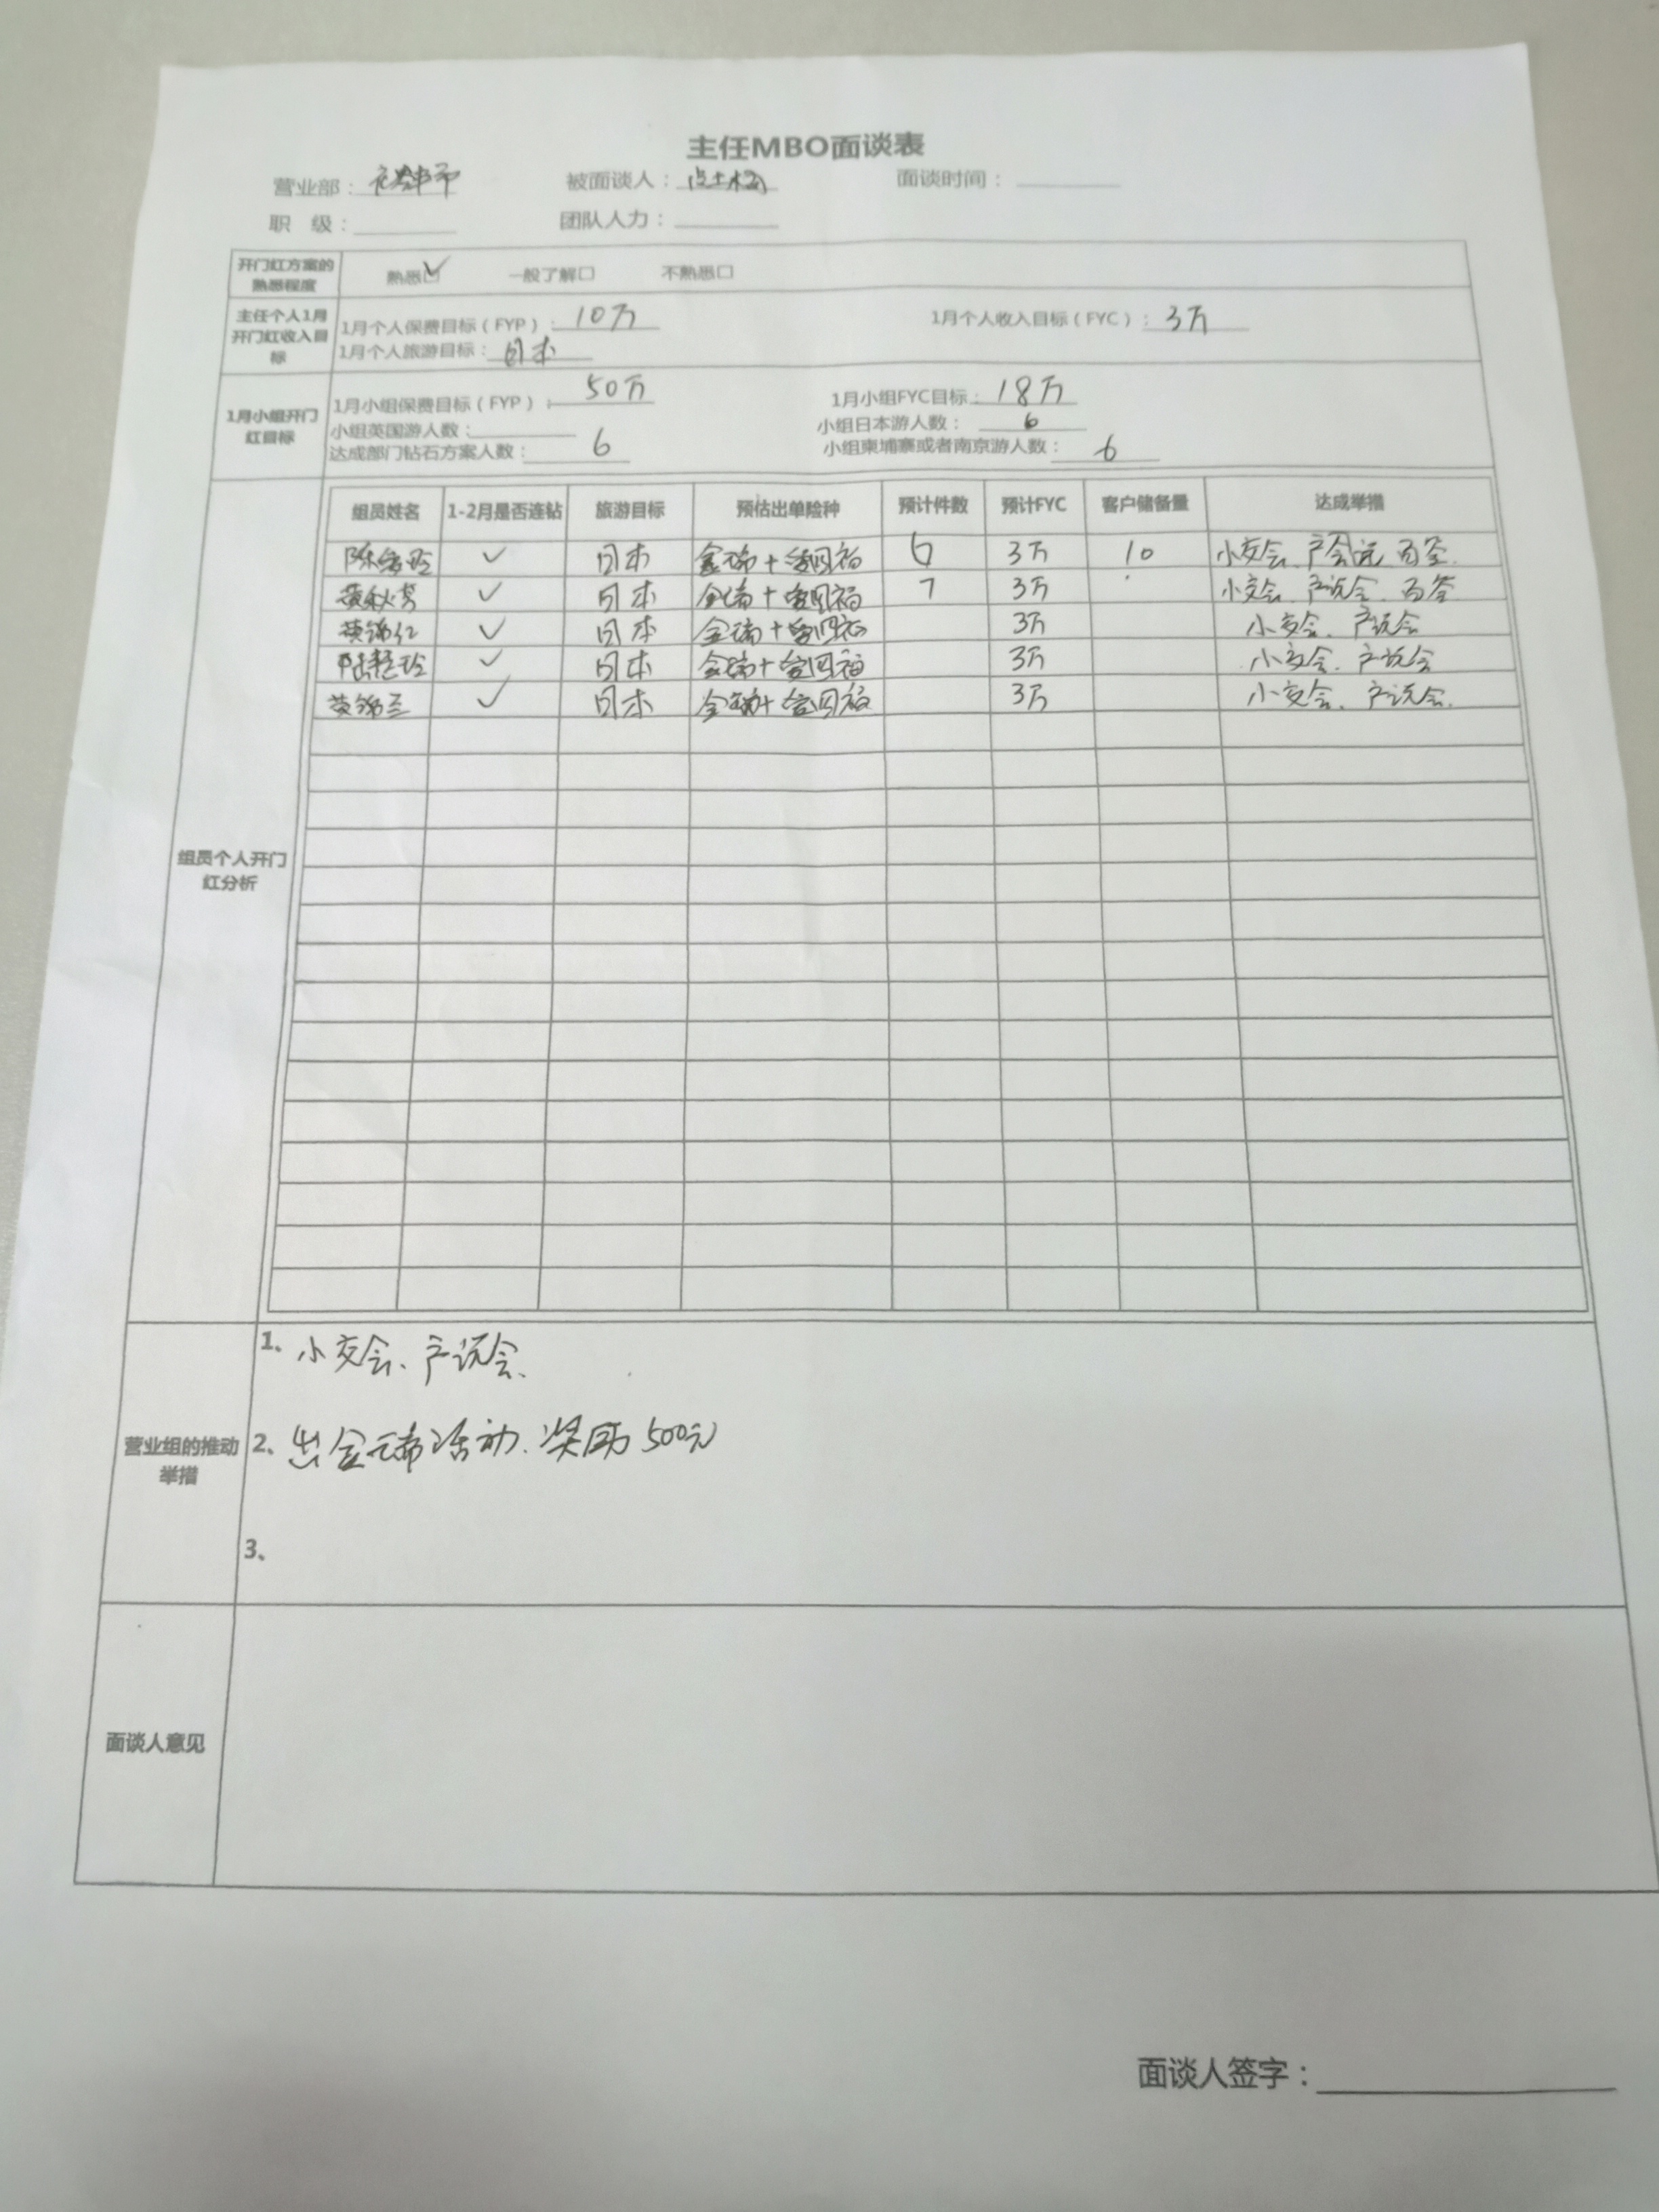 主任MBO面谈表
营业部： 被面谈人： 面谈时间：
职 级： 团队人力：
开门红方案的熟悉程度 熟悉☑ 一般了解□ 不熟悉□
主任个人1月开门红收入目标
1月个人保费目标（FYP）：10万 1月个人收入目标（FYC）：3万
1月个人旅游目标：日本
1月小组开门红目标
1月小组保费目标（FYP）：50万 1月小组FYC目标：18万
小组英国游人数： 小组日本游人数：6
达成部门钻石方案人数：6 小组柬埔寨或者南京游人数：6
组员个人开门红分析
组员姓名 1-2月是否连钻 旅游目标 预估出单险种 预计件数 预计FYC 客户储备量 达成举措
✓ 日本 金瑞+ 6 3万 10 小交会、
✓ 日本 金瑞+ 7 3万 小交会、产说会、
✓ 日本 金瑞+ 3万 小交会、产说会
✓ 日本 金瑞+ 3万 小交会、产说会
✓ 日本 金瑞+ 3万 小交会、产说会
营业组的推动举措
1、小交会、产说会、
2、出金瑞活动、奖励500元
3、
面谈人意见
面谈人签字：